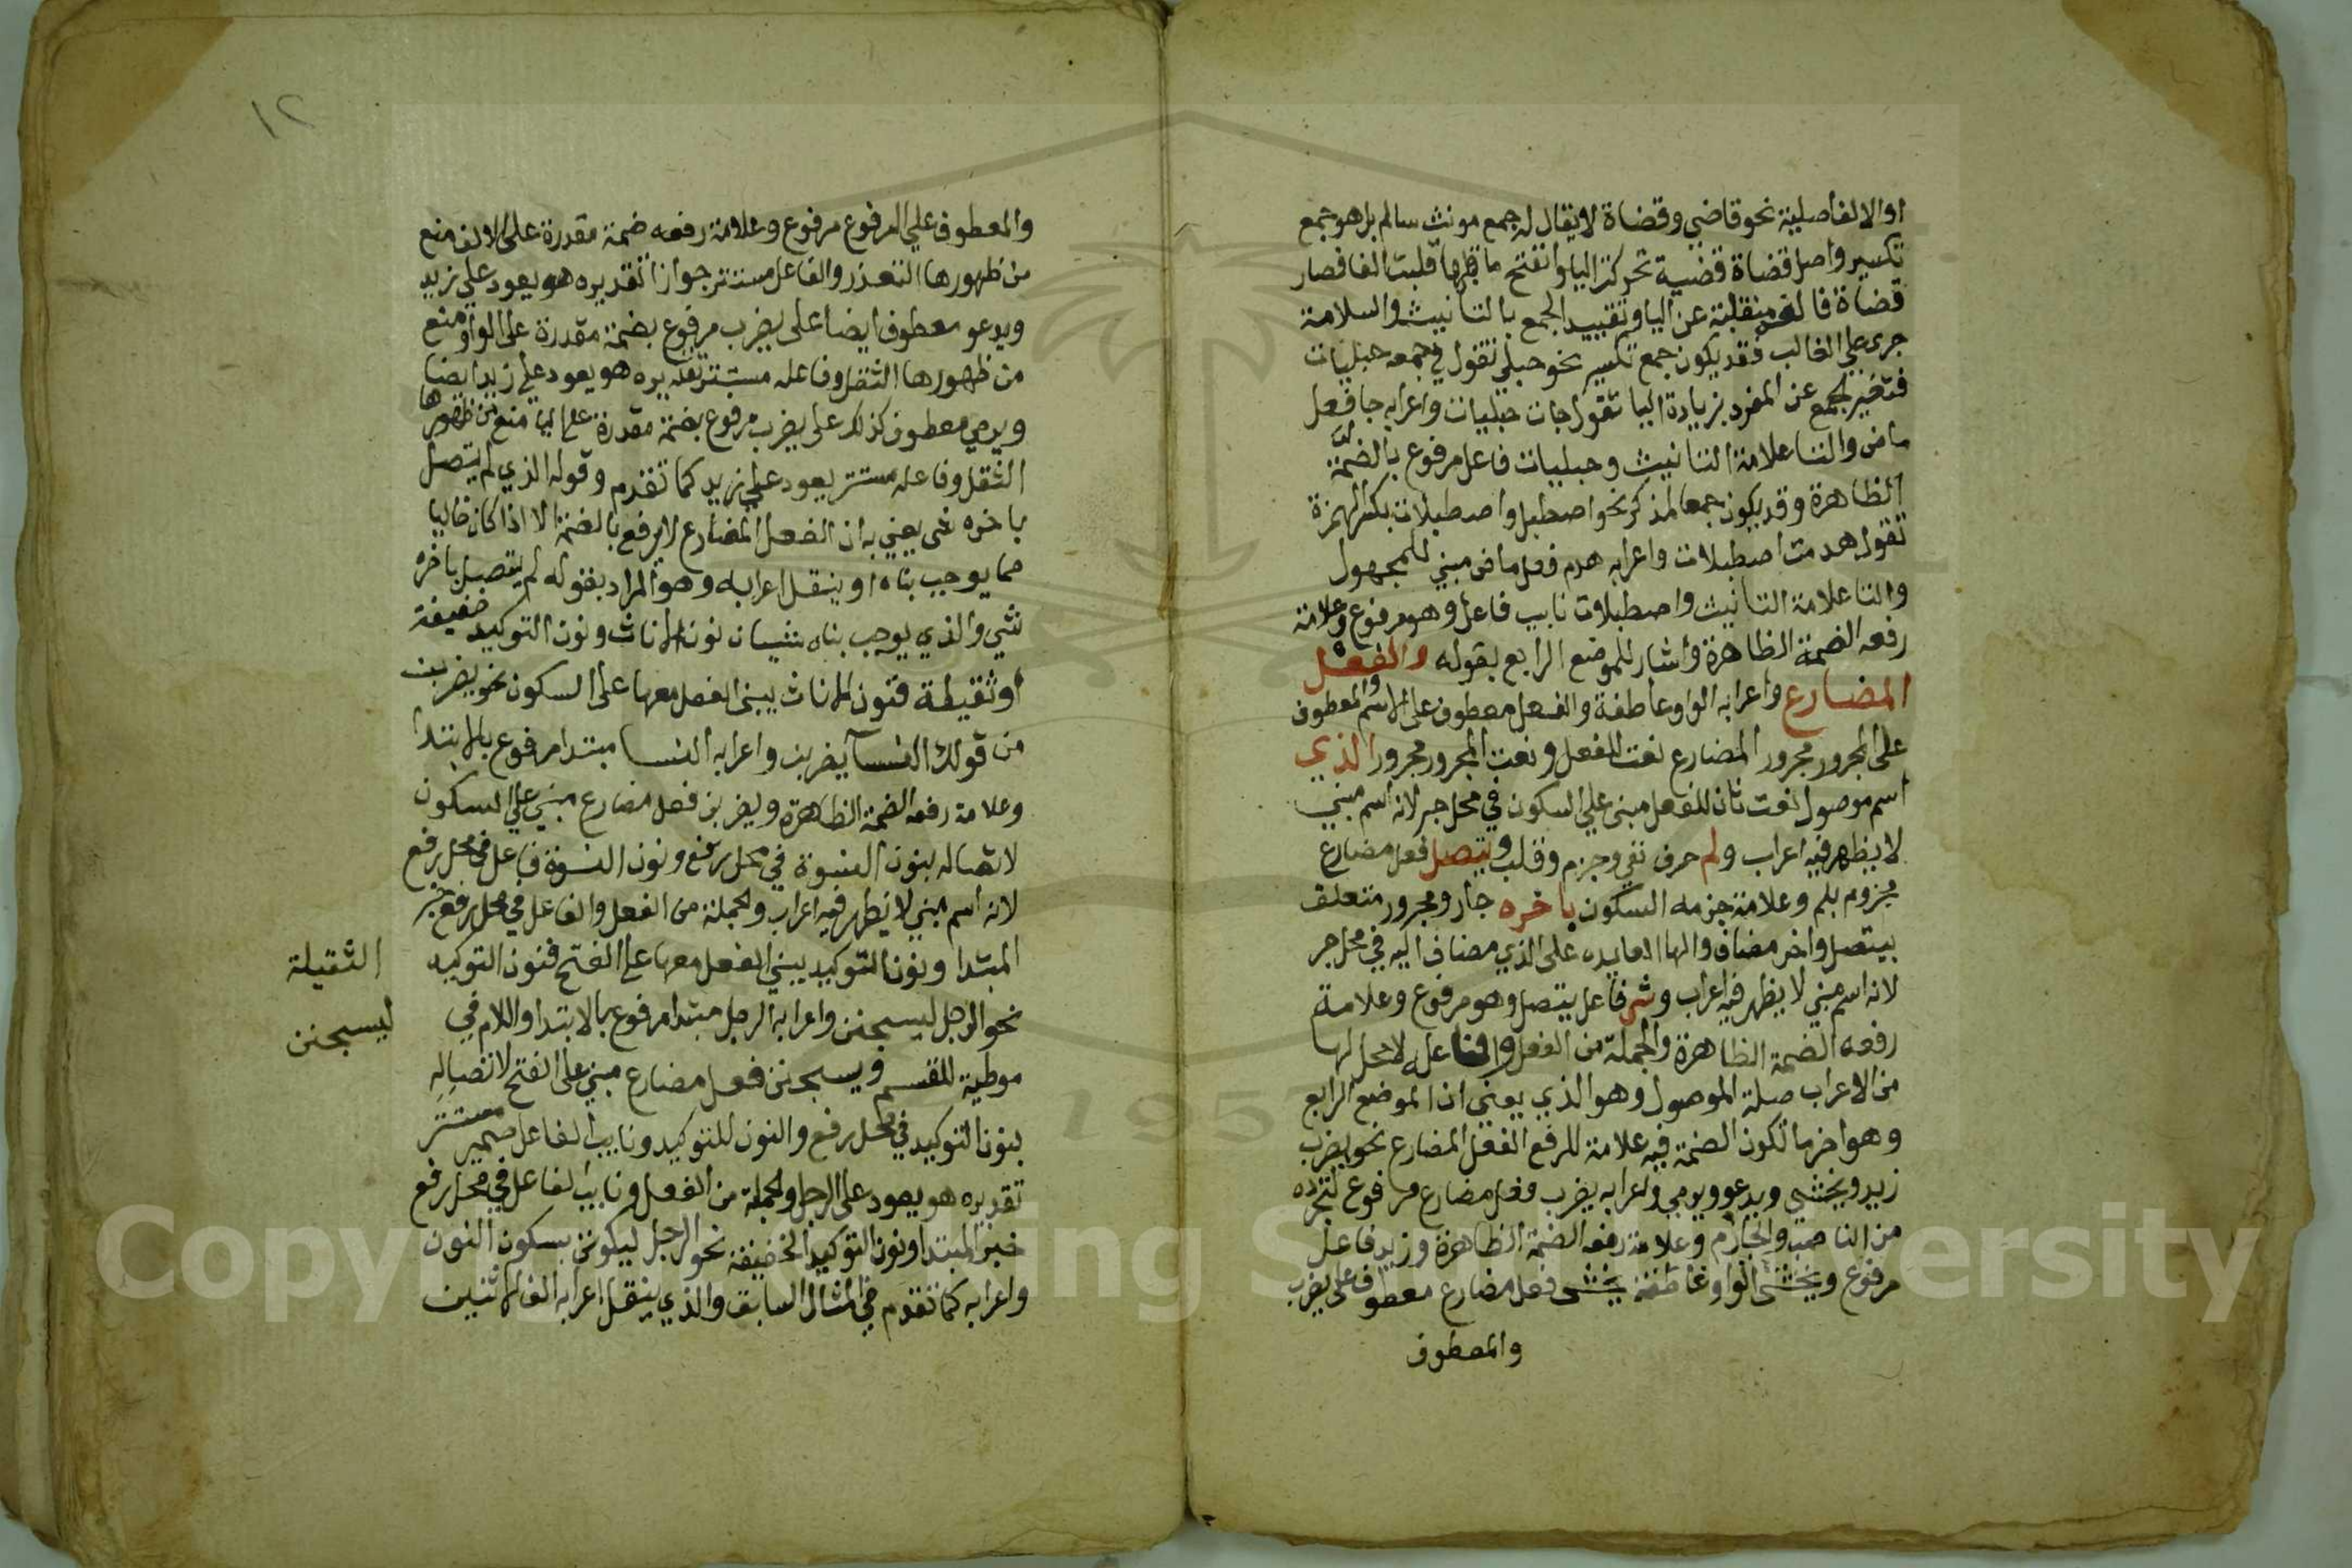 او الالف اصلية نحو قاضي وقضاة لا يقال له جمع مونث سالم بل هو جمع
تكسير واصل قضاة قضية تحركت اليا وانفتح ما قبلها قلبت الفا فصار
قضاة فالفه منقلبة عن اليا وتقييد الجمع بالتانيث والسلامة
جرى على الغالب فقد يكون جمع تكسير نحو حبلى تقول في جمعه حبليات
فتغير الجمع عن المفرد بزيادة اليا تقول جات حبليات واعرابه جا فعل
ماض والتا علامة التانيث وحبليات فاعل مرفوع بالضمة
الظاهرة وقد يكون جمعا لمذكر نحو اصطبل واصطبلات بكسر الهمزة
تقول هدمت اصطبلات واعرابه هدم فعل ماض مبني للمجهول
والتا علامة التانيث واصطبلات نايب فاعل وهو مرفوع وعلامة
رفعه الضمة الظاهرة واشار للموضع الرابع بقوله والفعل
المضارع واعرابه الواو عاطفة والفعل معطوف على الاسم والمعطوف
على المجرور مجرور المضارع نعت للفعل ونعت المجرور مجرور الذي
اسم موصول نعت ثان للفعل مبني علي السكون في محل جر لانه اسم مبني
لا يظهر فيه اعراب ولم حرف نفي وجزم وقلب ويتصل فعل مضارع
مجزوم بلم وعلامة جزمه السكون باخره جار ومجرور متعلق
بيتصل واخر مضاف والها العايده على الذي مضاف اليه في محل جر
لانه اسم مبني لا يظهر فيه اعراب وشي فاعل يتصل وهو مرفوع وعلامة
رفعه الضمة الظاهرة والجملة من الفعل والفاعل لا محل لها
من الاعراب صلة الموصول وهو الذي يعني ان الموضع الرابع
وهو اخر ما تكون الضمة فيه علامة للرفع الفعل المضارع نحو يضرب
زيد ويخشي ويدعو ويرمي واعرابه يضرب فعل مضارع مرفوع لتجرده
من الناصب والجازم وعلامة رفعه الضمة الظاهرة وزيد فاعل
مرفوع ويخشى الواو عاطفة يخشى فعل مضارع معطوف على يضرب
والمعطوف
١٢
والمعطوف علي المرفوع مرفوع وعلامة رفعه ضمة مقدرة على الالف منع
من ظهورها التعذر والفاعل مستتر جوازا تقديره هو يعود علي زيد
ويدعو معطوف ايضا على يضرب مرفوع بضمة مقدرة على الواو منع
من ظهورها الثقل وفاعله مستتر تقديره هو يعود علي زيد ايضا
ويرمي معطوف كذلك على يضرب مرفوع بضمة مقدرة على اليا منع من ظهورها
الثقل وفاعله مستتر يعود علي زيد كما تقدم وقوله الذي لم يتصل
باخره شي يعني به ان الفعل المضارع لا يرفع بالضمة الا اذا كان خاليا
مما يوجب بناه او ينقل اعرابه وهو المراد بقوله لم يتصل باخره
شي والذي يوجب بناه شيان نون الاناث ونون التوكيد خفيفة
او ثقيلة فنون الاناث يبنى الفعل معها على السكون نحو يضربن
من قولك النسا يضربن واعرابه النسا مبتدا مرفوع بالابتدا
وعلامة رفعه الضمة الظاهرة ويضربن فعل مضارع مبني علي السكون
لاتصاله بنون النسوة في محل رفع ونون النسوة فاعل في محل رفع
لانه اسم مبني لا يظهر فيه اعراب والجملة من الفعل والفاعل في محل رفع خبر
المبتدا ونون التوكيد يبني الفعل معها على الفتح فنون التوكيد
الثقيلة
نحو الرجل ليسجنن واعرابه الرجل مبتدا مرفوع بالابتدا واللام في
ليسجنن
موطية للقسم ويسجنن فعل مضارع مبني على الفتح لاتصاله
بنون التوكيد في محل رفع والنون للتوكيد ونايب الفاعل ضمير مستتر
تقديره هو يعود على الرجل والجملة من الفعل ونايب الفاعل في محل رفع
خبر المبتدا ونون التوكيد الخفيفة نحو الرجل ليكونن بسكون النون
واعرابه كما تقدم في المثال السابق والذي ينقل اعرابه الف الاثنين